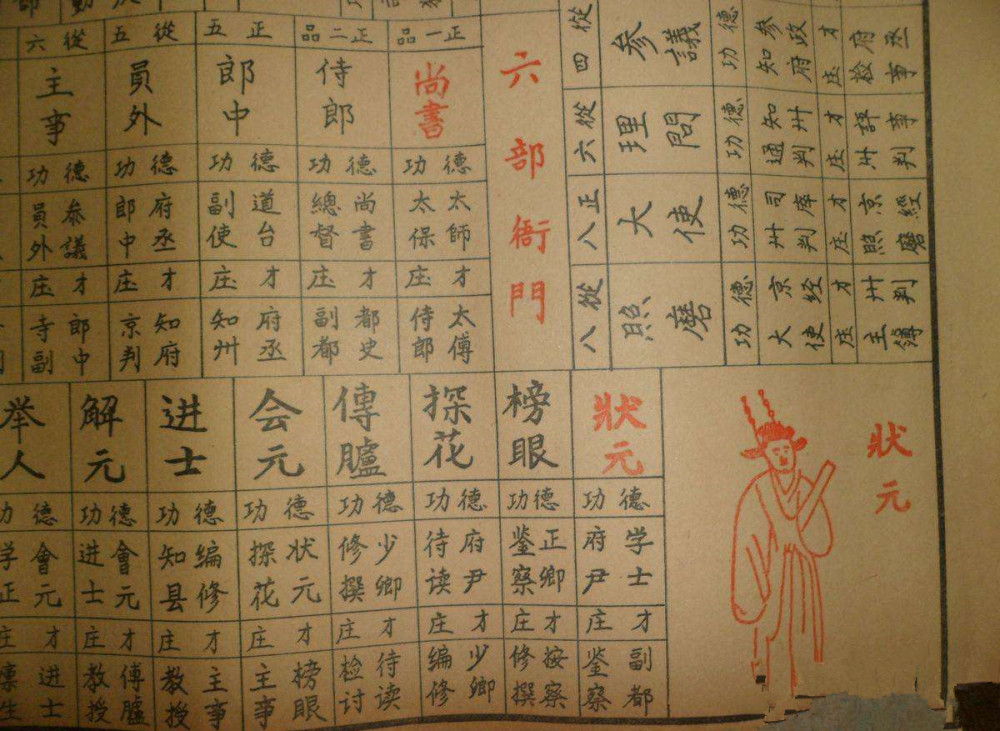 從四
参議
德功
参政
知府
才庄
府丞
檢事
從六
理問
德功
知州
通判
才庄
評事
州判
正八
大使
德功
司庫
州判
才庄
京經
照磨
從八
照磨
德功
京经
大使
才庄
州判
主簿
六部衙門
正一品
尚書
德功
太師
太保
才庄
太傅
侍郎
正二品
侍郎
德功
尚書
總督
才庄
都史
副都
正五
郎中
德功
道台
副使
才庄
府丞
知州
從五
員外
德功
府丞
郎中
才庄
知府
京判
從六
主事
德功
叅議
員外
才庄
郎中
寺副
狀元
狀元
德功
学士
府尹
才庄
副都
鉴察
榜眼
德功
正卿
鉴察
才庄
按察
修撰
探花
德功
府尹
待读
才庄
少卿
编修
傳臚
德功
少卿
修撰
才庄
待读
检讨
会元
德功
状元
探花
才庄
榜眼
主事
进士
德功
编修
知县
才庄
主事
教授
解元
德功
會元
进士
才庄
傅臚
教授
举人
德功
會元
学正
才庄
进士